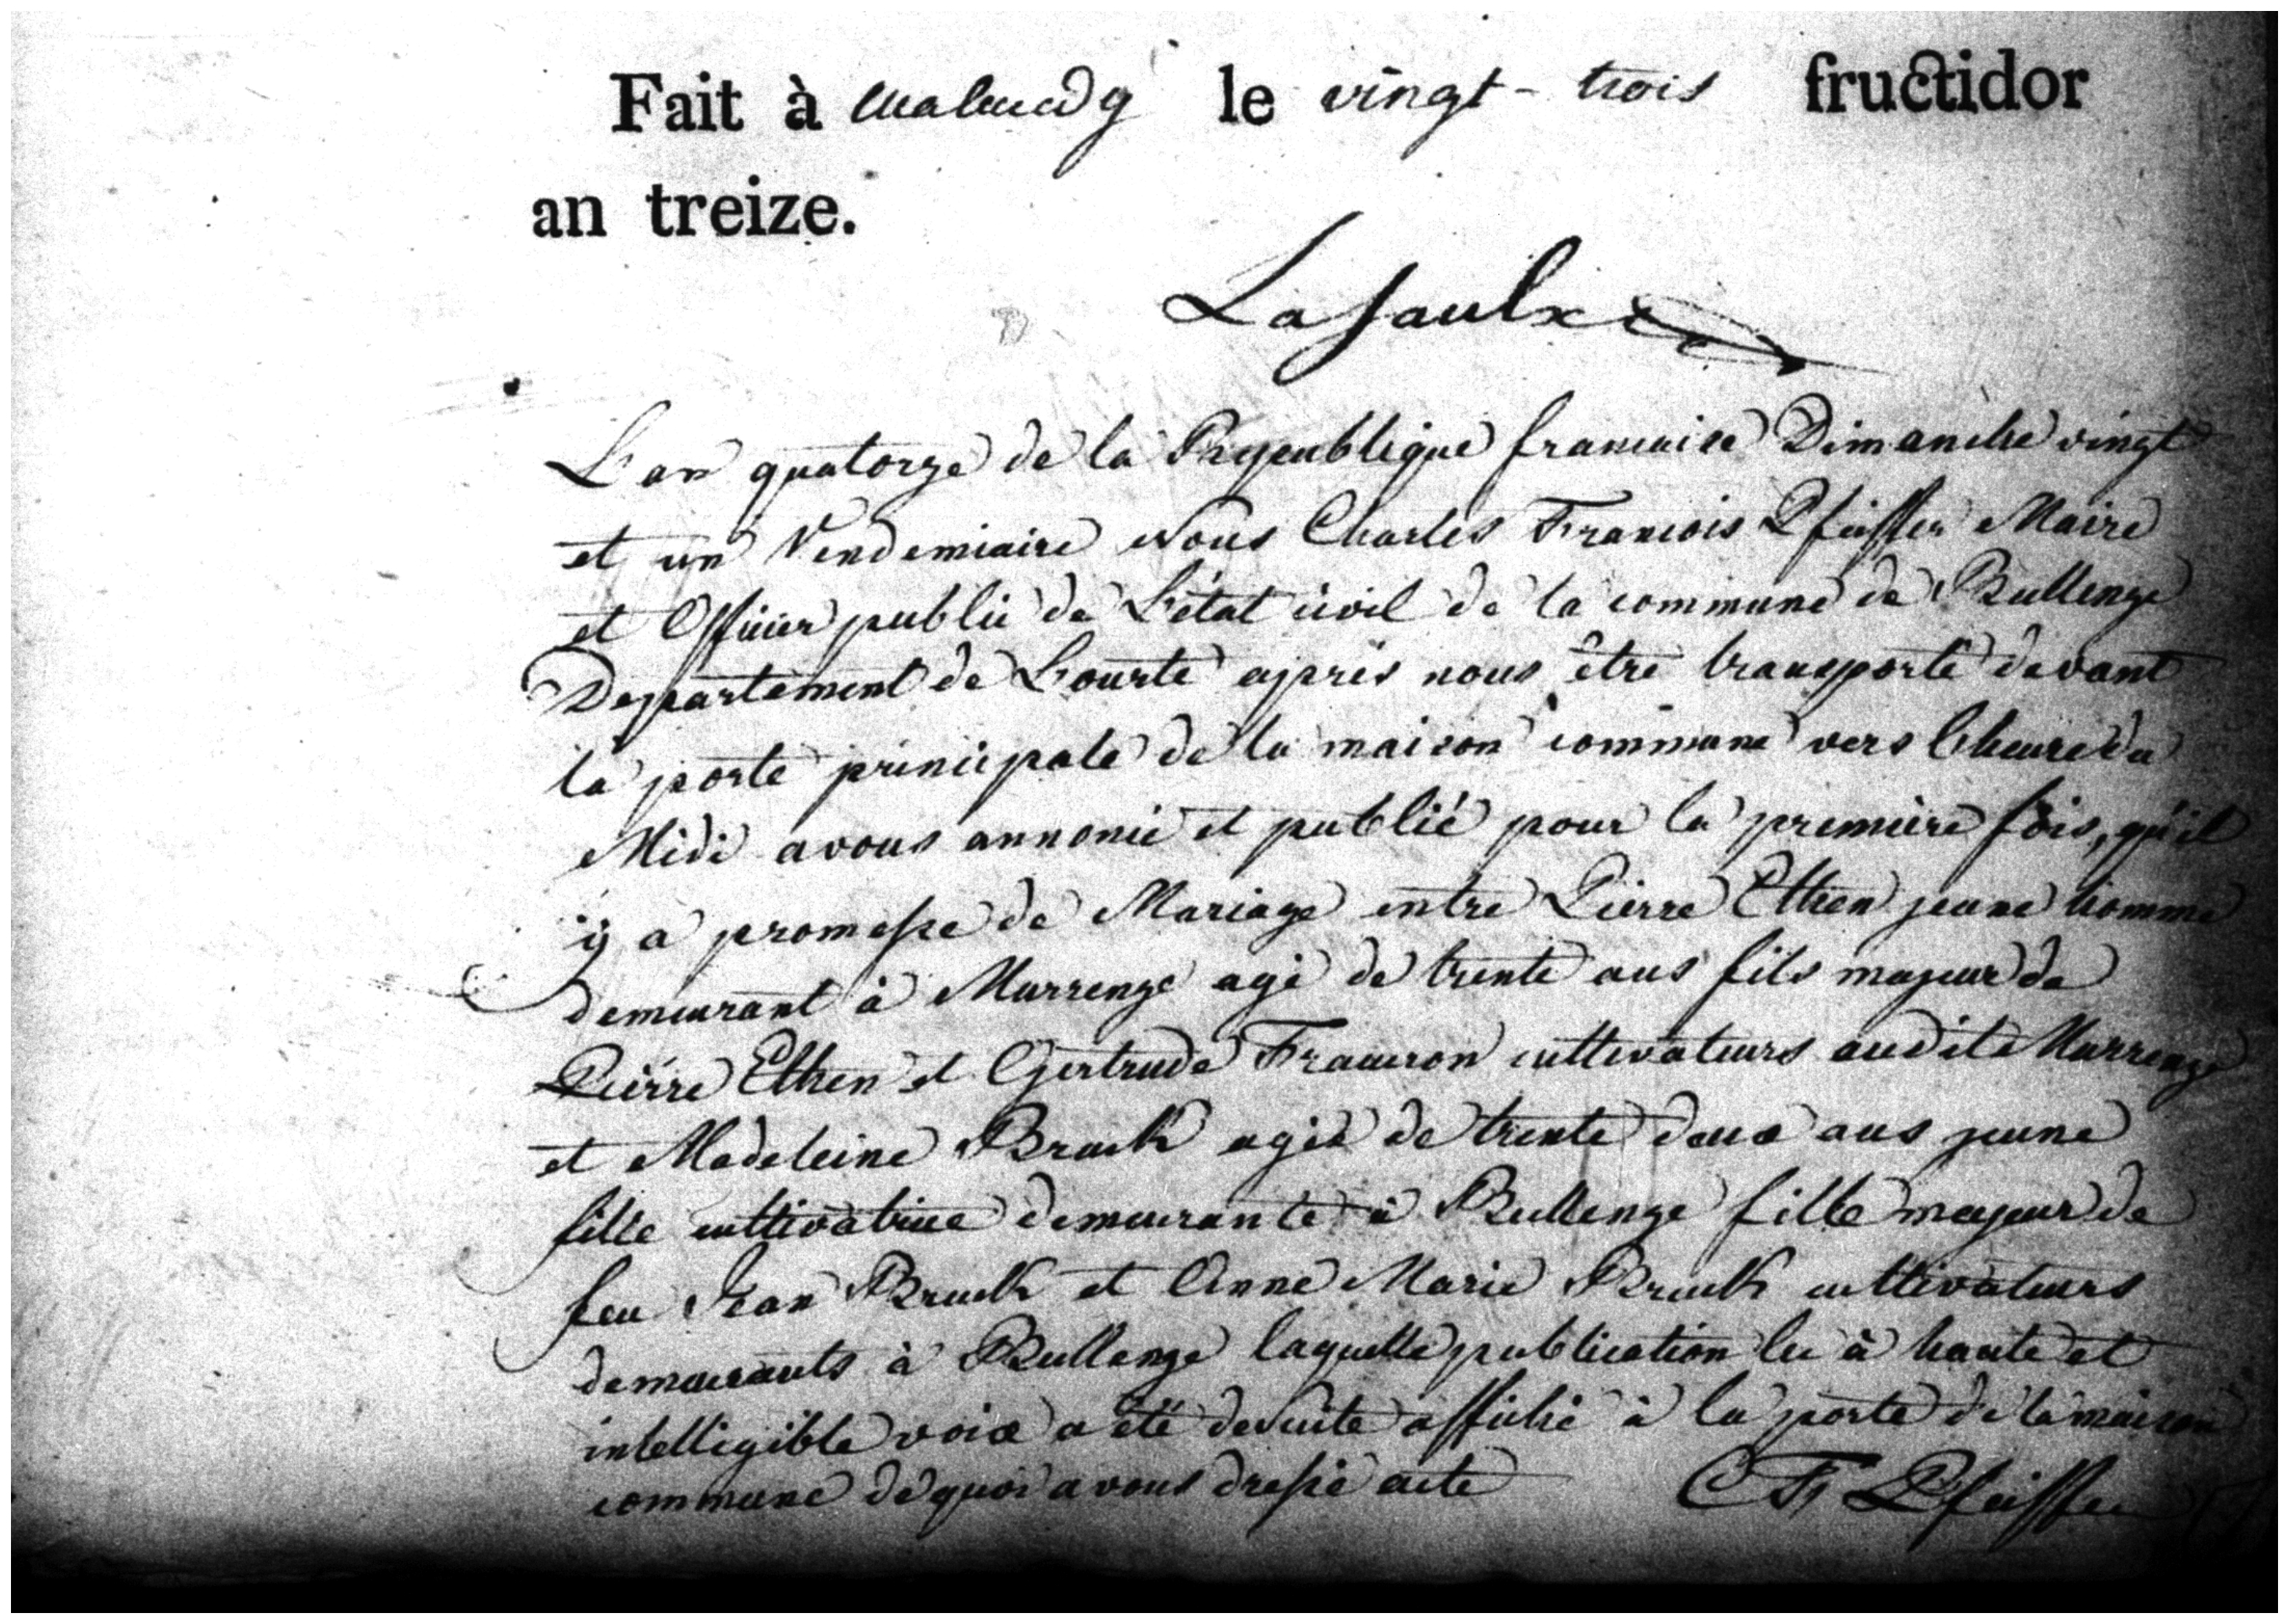 Fait à Malmedy le vingt-trois fructidor
an treize.
Lasaulx
L'an quatorze de la Republique francaise Dimanche vingt
et un Vendemiaire Nous Charles Francois Pfeiffer Maire
et Officier public de L'état civil de la commune de Bullenge
Departement de L'ourte après nous être transporté devant
la porte principale de la maison commune vers l'heure de
Midi avons annoncé et publié pour la première fois, qu'il
y a promesse de Mariage entre Pierre Ethen jeune homme
demeurant à Murrenge agé de trente ans fils majeur de
Pierre Ethen et Gertrude cultivateurs audit Murrenge
et Madeleine Bruck agée de trente deux ans jeune
fille cultivatrice demeurante à Bullenge fille majeur de
feu Jean Bruck et Anne Marie Bruck cultivateurs
demeurants à Bullenge laquelle publication lu à haute et
intelligible voix a été desuite affiché à la porte de la maison
commune de quoi avons dressé acte CF Pfeiffer